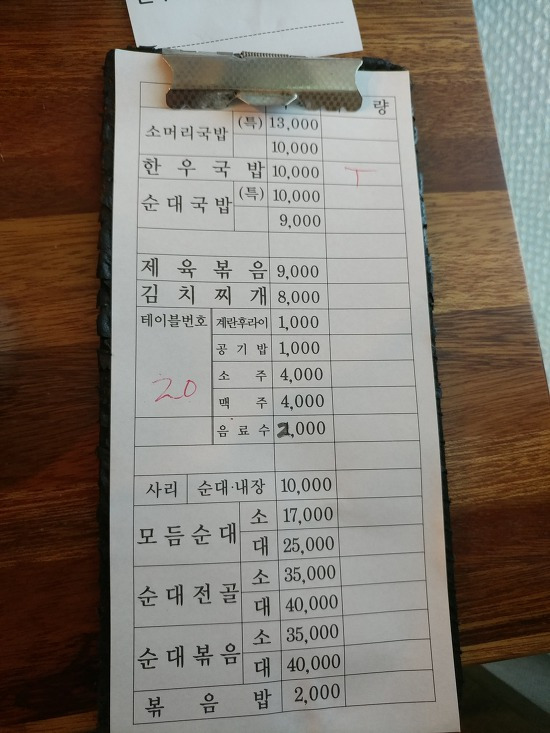 량
소머리국밥 (특) 13,000
10,000
한우국밥 10,000 T
순대국밥 (특) 10,000
9,000
제육볶음 9,000
김치찌개 8,000
테이블번호 계란후라이 1,000
공기밥 1,000
20 소주 4,000
맥주 4,000
음료수 2,000
사리 순대·내장 10,000
모듬순대 소 17,000
대 25,000
순대전골 소 35,000
대 40,000
순대볶음 소 35,000
대 40,000
볶음밥 2,000